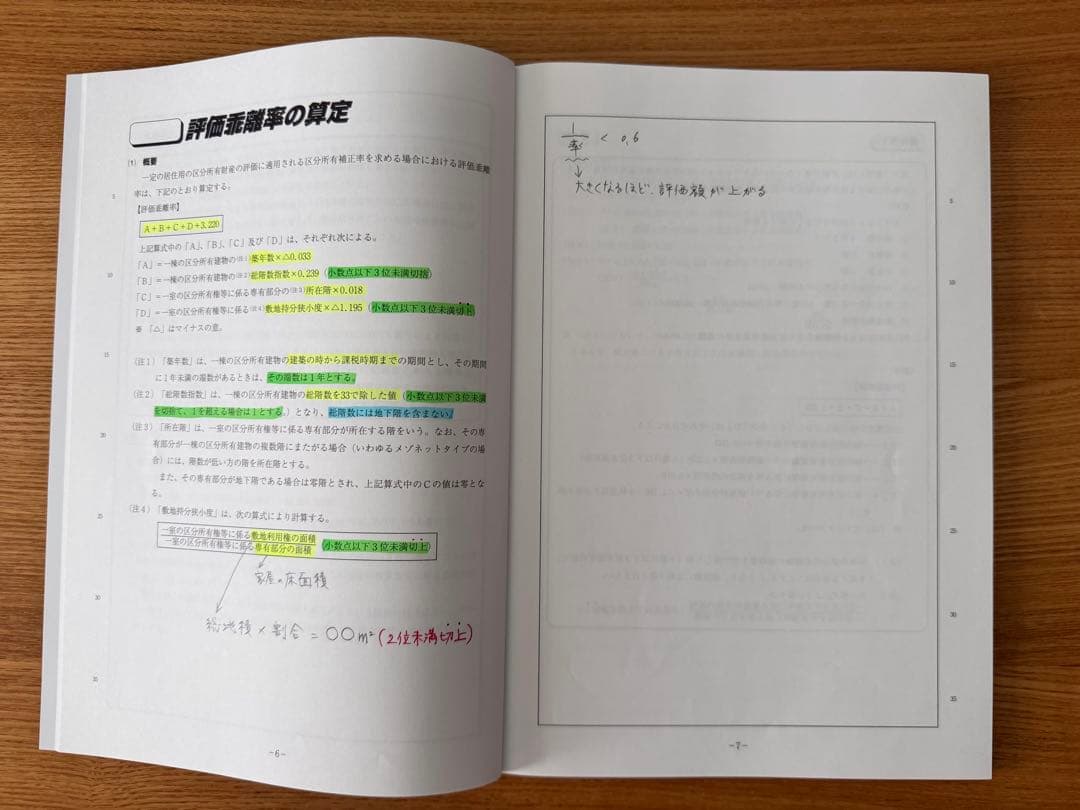 評価乖離率の算定
(1) 概要
一定の居住用の区分所有財産の評価に適用される区分所有補正率を求める場合における評価乖離
率は、下記のとおり算定する。
5
【評価乖離率】
A+B+C+D+3.220
上記算式中の「A」、「B」、「C」及び「D」は、それぞれ次による。
「A」=一棟の区分所有建物の(注1)築年数×△0.033
10
「B」=一棟の区分所有建物の(注2)総階数指数×0.239(小数点以下3位未満切捨)
「C」=一室の区分所有権等に係る専有部分の(注3)所在階×0.018
「D」=一室の区分所有権等に係る(注4)敷地持分狭小度×△1.195(小数点以下3位未満切上)
※ 「△」はマイナスの意。
15
(注1)「築年数」は、一棟の区分所有建物の建築の時から課税時期までの期間とし、その期間
に1年未満の端数があるときは、その端数は1年とする。
(注2)「総階数指数」は、一棟の区分所有建物の総階数を33で除した値(小数点以下3位未満
を切捨て、1を超える場合は1とする。)となり、総階数には地下階を含まない。
20
(注3)「所在階」は、一室の区分所有権等に係る専有部分が所在する階をいう。なお、その専
有部分が一棟の区分所有建物の複数階にまたがる場合(いわゆるメゾネットタイプの場
合)には、階数が低い方の階を所在階とする。
また、その専有部分が地下階である場合は零階とされ、上記算式中のCの値は零とな
る。
25
(注4)「敷地持分狭小度」は、次の算式により計算する。
一室の区分所有権等に係る敷地利用権の面積
一室の区分所有権等に係る専有部分の面積
(小数点以下3位未満切上)
家屋の床面積
30
総地積×割合=〇〇m²(2位未満切上)
35
-6-
1/率 < 0.6
大きくなるほど、評価額が上がる
5
10
15
20
25
30
35
-7-